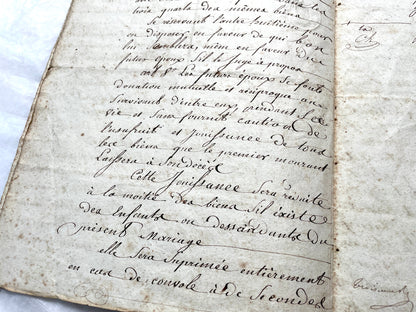 trois quarts des mêmes biens
se réservant l'autre huitième pour
en disposer en faveur de qui bon
lui semblera, mêm en faveur du
futur époux s'il le juge à propos
art 8e Les futurs époux se font
donation mutuelle et réciproque au
Survivant d'intre eux, pendant sa
vie et sans fournir caution de
l'usufruit et jouissance de tous
les biens que le premier mourant
laissera à son décéz
Cette jouissance sera réduite
à la moitié des biens s'il existe
des Enfants ou dessendants du
présent Mariage
elle sera suprimée entièrement
en cas de convole à de secondes